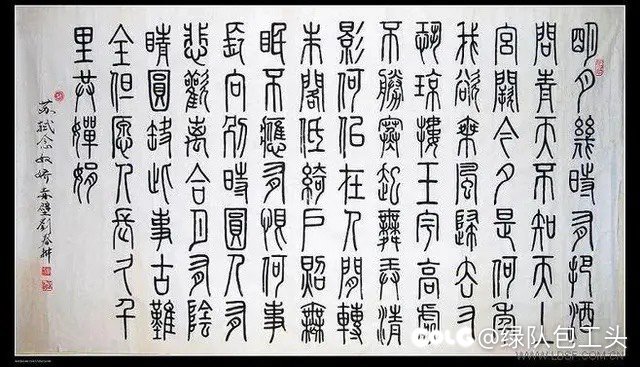 明月幾時有把酒
問青天不知天上
宮闕今夕是何年
我欲乘風歸去又
恐瓊樓玉宇高處
不勝寒起舞弄清
影何似在人間轉
朱閣低綺戶照無
眠不應有恨何事
長向別時圓人有
悲歡離合月有陰
晴圓缺此事古難
全但愿人長久千
里共嬋娟
苏軾念奴娇赤壁劉春耕
@绿队包工头